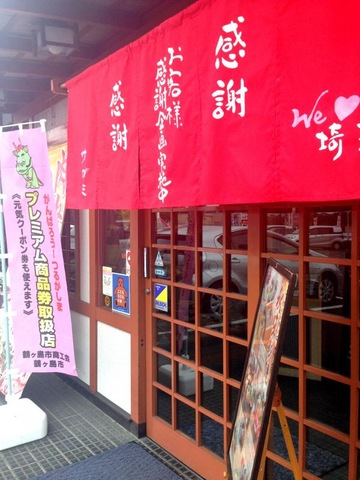 感謝
お客様
感謝企画実施中
感謝
サガミ
We
埼
がんばろうー！つるがしま
プレミアム商品券取扱店
《元気クーポン券も使えます》
鶴ヶ島市商工会
鶴ヶ島市